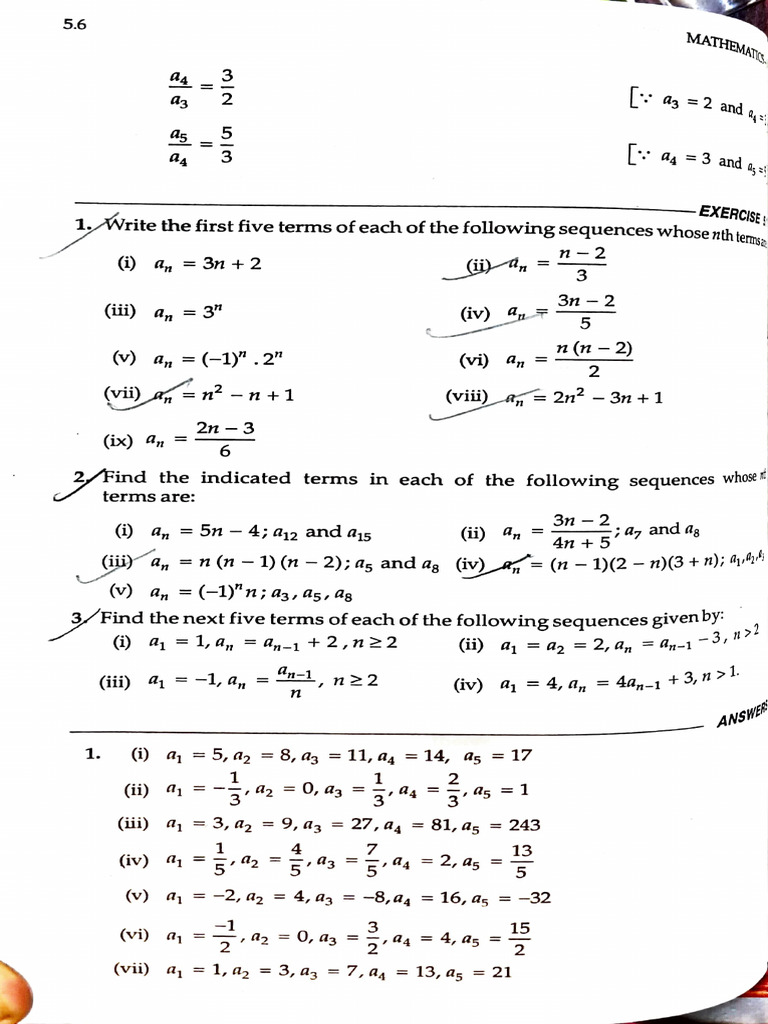 5.6
MATHEMATICS
a₄/a₃ = 3/2 [∵ a₃ = 2 and a₄ =
a₅/a₄ = 5/3 [∵ a₄ = 3 and a₅ =
EXERCISE
1. Write the first five terms of each of the following sequences whose nth terms
(i) aₙ = 3n + 2 (ii) aₙ = (n − 2)/3
(iii) aₙ = 3ⁿ (iv) aₙ = (3n − 2)/5
(v) aₙ = (−1)ⁿ . 2ⁿ (vi) aₙ = n (n − 2)/2
(vii) aₙ = n² − n + 1 (viii) aₙ = 2n² − 3n + 1
(ix) aₙ = (2n − 3)/6
2. Find the indicated terms in each of the following sequences whose
terms are:
(i) aₙ = 5n − 4; a₁₂ and a₁₅ (ii) aₙ = (3n − 2)/(4n + 5); a₇ and a₈
(iii) aₙ = n (n − 1) (n − 2); a₅ and a₈ (iv) aₙ = (n − 1)(2 − n)(3 + n); a₁, a₂,
(v) aₙ = (−1)ⁿ n; a₃, a₅, a₈
3. Find the next five terms of each of the following sequences given by:
(i) a₁ = 1, aₙ = aₙ₋₁ + 2, n ≥ 2 (ii) a₁ = a₂ = 2, aₙ = aₙ₋₁ − 3, n > 2
(iii) a₁ = −1, aₙ = aₙ₋₁/n, n ≥ 2 (iv) a₁ = 4, aₙ = 4aₙ₋₁ + 3, n > 1.
ANSWERS
1. (i) a₁ = 5, a₂ = 8, a₃ = 11, a₄ = 14, a₅ = 17
(ii) a₁ = −1/3, a₂ = 0, a₃ = 1/3, a₄ = 2/3, a₅ = 1
(iii) a₁ = 3, a₂ = 9, a₃ = 27, a₄ = 81, a₅ = 243
(iv) a₁ = 1/5, a₂ = 4/5, a₃ = 7/5, a₄ = 2, a₅ = 13/5
(v) a₁ = −2, a₂ = 4, a₃ = −8, a₄ = 16, a₅ = −32
(vi) a₁ = −1/2, a₂ = 0, a₃ = 3/2, a₄ = 4, a₅ = 15/2
(vii) a₁ = 1, a₂ = 3, a₃ = 7, a₄ = 13, a₅ = 21